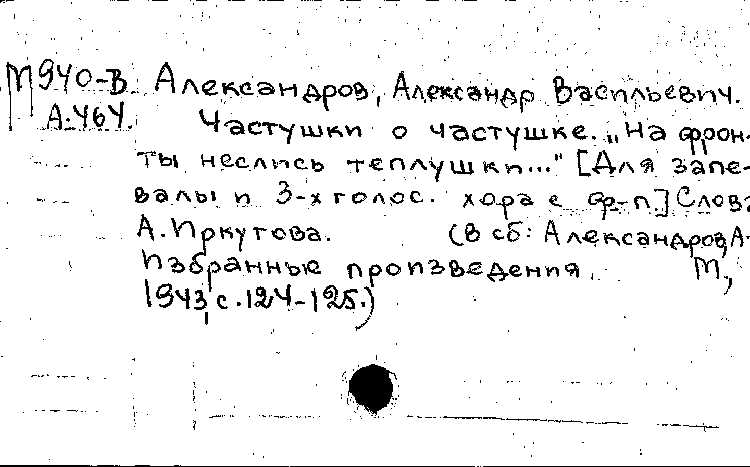 М940-В Александров, Александр Васильевич.
А-464 Частушки о частушке. „На фрон-
ты неслись теплушки..." [Для запе-
валы и 3-х голос. хора с ф-п.] Слова
А. Иркутова. (В сб: Александров, А.
Избранные произведения. М.,
1943, с. 124-125.)